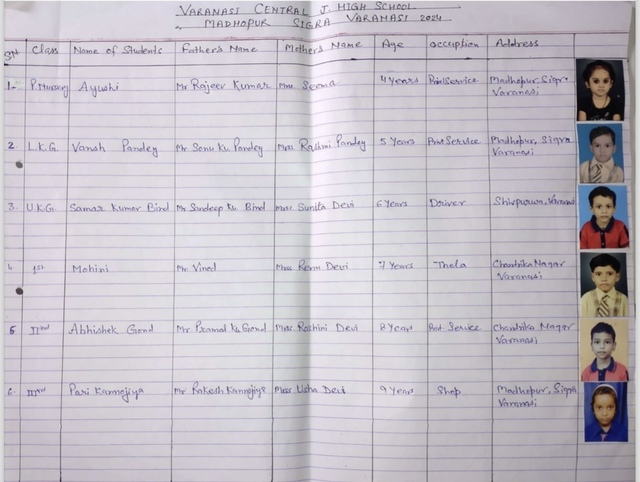 VARANASI CENTRAL J. HIGH SCHOOL
MADHOPUR SIGRA VARANASI 2024
SN Class Name of Students Father's Name Mother's Name Age occuption Address
1- P.Nursery Ayushi Mr Rajeev Kumar Mrs. Seema 4 Years Service Madhopur, Sigra
Varanasi
2. L.K.G. Vansh Pandey Mr Sonu Ku Pandey Mrs. Rashmi Pandey 5 Years Service Madhopur, Sigra
Varanasi
3. U.K.G. Samar Kumar Bind Mr Sandeep Ku Bind Mrs. Sunita Devi 6 Years Driver Shivpurwa, Varanasi
4. 1st Mohini Mr. Vinod Mrs Renu Devi 7 Years Thela Chandrika Nagar
Varanasi
5 IInd Abhishek Gond Mr Ku Gond Mrs. Devi 8 Years Service Chandrika Nagar
Varanasi
6. Pari Kannojiya Mr Rakesh Kannojiya Mrs Usha Devi 9 Years Shop Madhopur, Sigra
Varanasi